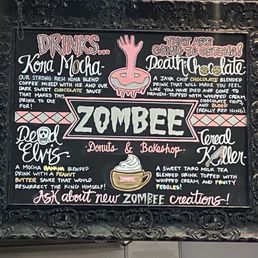 DRINKS...
THEY ARE
GOING TO GETCHA!
Kona Mocha-
OUR STRONG RICH KONA BLEND
COFFEE MIXED WITH ICE AND OUR
DARK SWEET CHOCOLATE SAUCE
THAT MAKES THIS
DRINK TO DIE
FOR!
Death Chocolate
A JAVA CHIP CHOCOLATE BLENDED
DRINK THAT WILL MAKE YOU FEEL
LIKE YOU HAVE DIED AND GONE TO
HEAVEN-TOPPED WITH WHIPPED CREAM
CHOCOLATE CHIPS
AND BLOOD
(REALLY RED ICING)
ZOMBEE
Donuts & Bakeshop
Dead
Elvis-
A MOCHA BANANA BLENDED
DRINK WITH A PEANUT
BUTTER SAUCE THAT WOULD
RESURRECT THE KING HIMSELF!
Cereal
Killer
A SWEET TARO MILK TEA
BLENDED DRINK TOPPED WITH
WHIPPED CREAM AND FRUITY
PEBBLES!
Ask about new ZOMBEE creations!